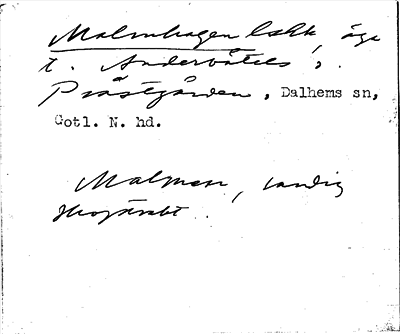 Malmhagen lshk, äga
t. Anderbåtels o.
Prästgården, Dalhems sn,
Gotl. N. hd.
Malmen, sandig
skogsmark